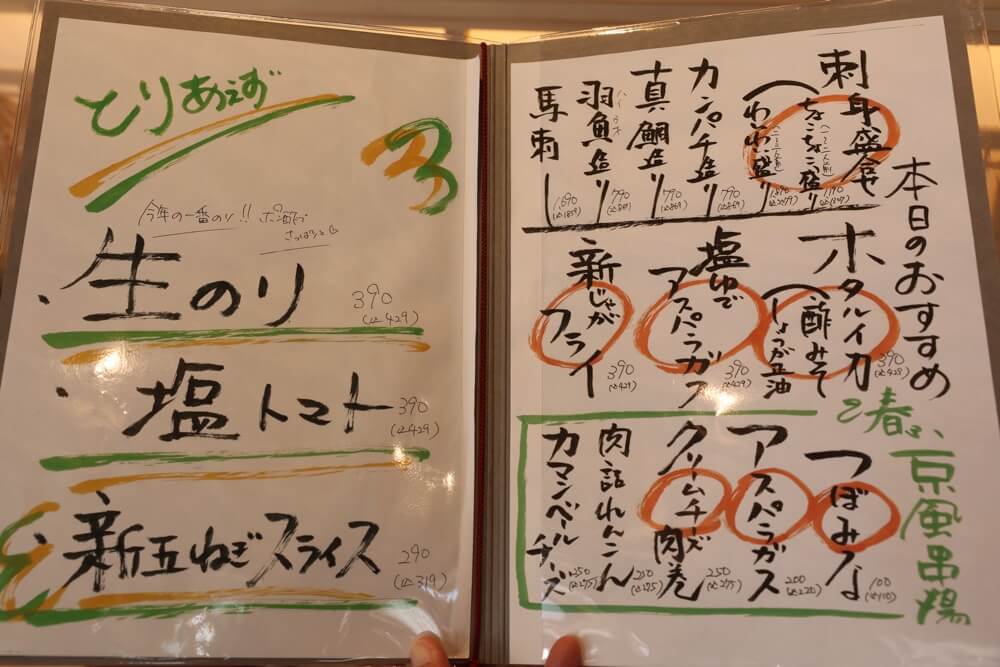 とりあえず
3
今年の一番のり!! ポン酢で
さっぱりと
・生のり 390
(込429)
・塩トマト 390
(込429)
・新玉ねぎスライス 290
(込319)
本日のおすすめ
刺身盛合せ
ちょこちょこ盛り
わいわい盛り
カンパチ造り 790
(込869)
真鯛造り 790
(込869)
羽魚造り 790
(込869)
馬刺し 1,690
(込1859)
ホタルイカ 390
(込429)
(酢みそ
しょうが正油
塩ゆで
アスパラガス 390
(込429)
新じゃが
フライ 390
(込429)
京風串揚
つぼみな 100
(込110)
アスパラガス 200
(込220)
クリームチーズ
肉巻 250
(込275)
肉詰れんこん 250
(込275)
カマンベール
チーズ 250
(込275)